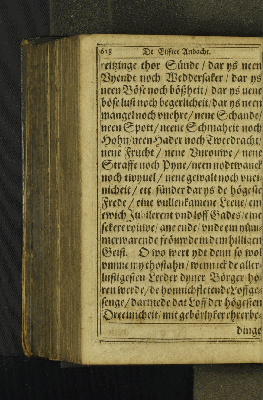 618 De Elffter Andacht.
reitzinge thor Sünde / dar ys neen
Vyendt noch Weddersaker / dar ys
neen Böse noch bößheit / dar ys nene
böse lust noch begerlicheit / dar ys neen
mangel noch unehre / nene Schande /
neen Spott / neene Schmaheit noch
Hohn / neen Hader noch Twedracht /
nene Frucht / nene Unrouwe / nene
Straffe noch Pyne / neen nodtwanck
noch twyuel / nene gewalt noch vnei-
nicheit / etc. sünder dar ys de högeste
Frede / eine vullenkamene Leeue / ein
ewich Jubileren vnd loff Gades / eine
sekere rouwe / ane ende / vnde ein
mmerwarende fröuwde in dem hilligen
Geist. O wo wert ydt denn so wol
vmme my thostahn / wenn ick de aller-
lustigesten Leeder dyner Börger hö-
ren werde / de honnichfletende Loffge-
senge / darmede dat Loff der högesten
Dreeinicheit / mit gebörlyker ehrerbe-
dinge